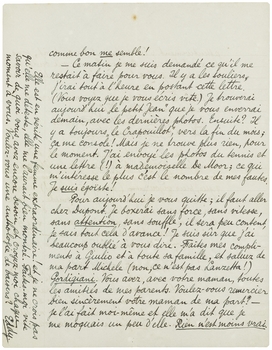 comme bon me semble!
— Ce matin je me suis demandé ce qu'il me
restait à faire pour vous. Il y a les souliers,
j'irai tout à l'heure en postant cette lettre.
(Vous voyez que je vous écris vite) Je trouverai
aujourd'hui le petit Jean que je vous enverrai
demain, avec les dernières photos. Ensuite? Il
y a toujours le Crapouillot, vers la fin du mois;
ça me console! Mais je ne trouve plus rien, pour
le moment. J'ai envoyé les photos du tennis et
une lettre (!) à mademoiselle de Mory; ce qui
m'intéresse le plus c'est le nombre de mes fautes.
Je suis égoïste!
Pour aujourd'hui je vous quitte; il faut aller
chez Dupont, je boxerai sans force, sans
sans attention, sans souffle, il sera peu content
je sais tout cela d'avance! Je suis sûr que j'ai
beaucoup oublié à vous dire. Faites mes compli-
ments à Giulio et à toute sa famille, et saluez de
ma part Michele (non, ce n'est pas Lanzetta!)
Vous avez, avec votre maman, toutes
les amitiés de mes parents. Voulez-vous remercier
bien sincèrement votre maman de ma part? —
je l'ai fait moi-même et elle m'a dit que je
me moquais un peu d'elle. Rien n'est moins vrai.
Elle est en vérité une femme extraordinaire! et je ne crois pas